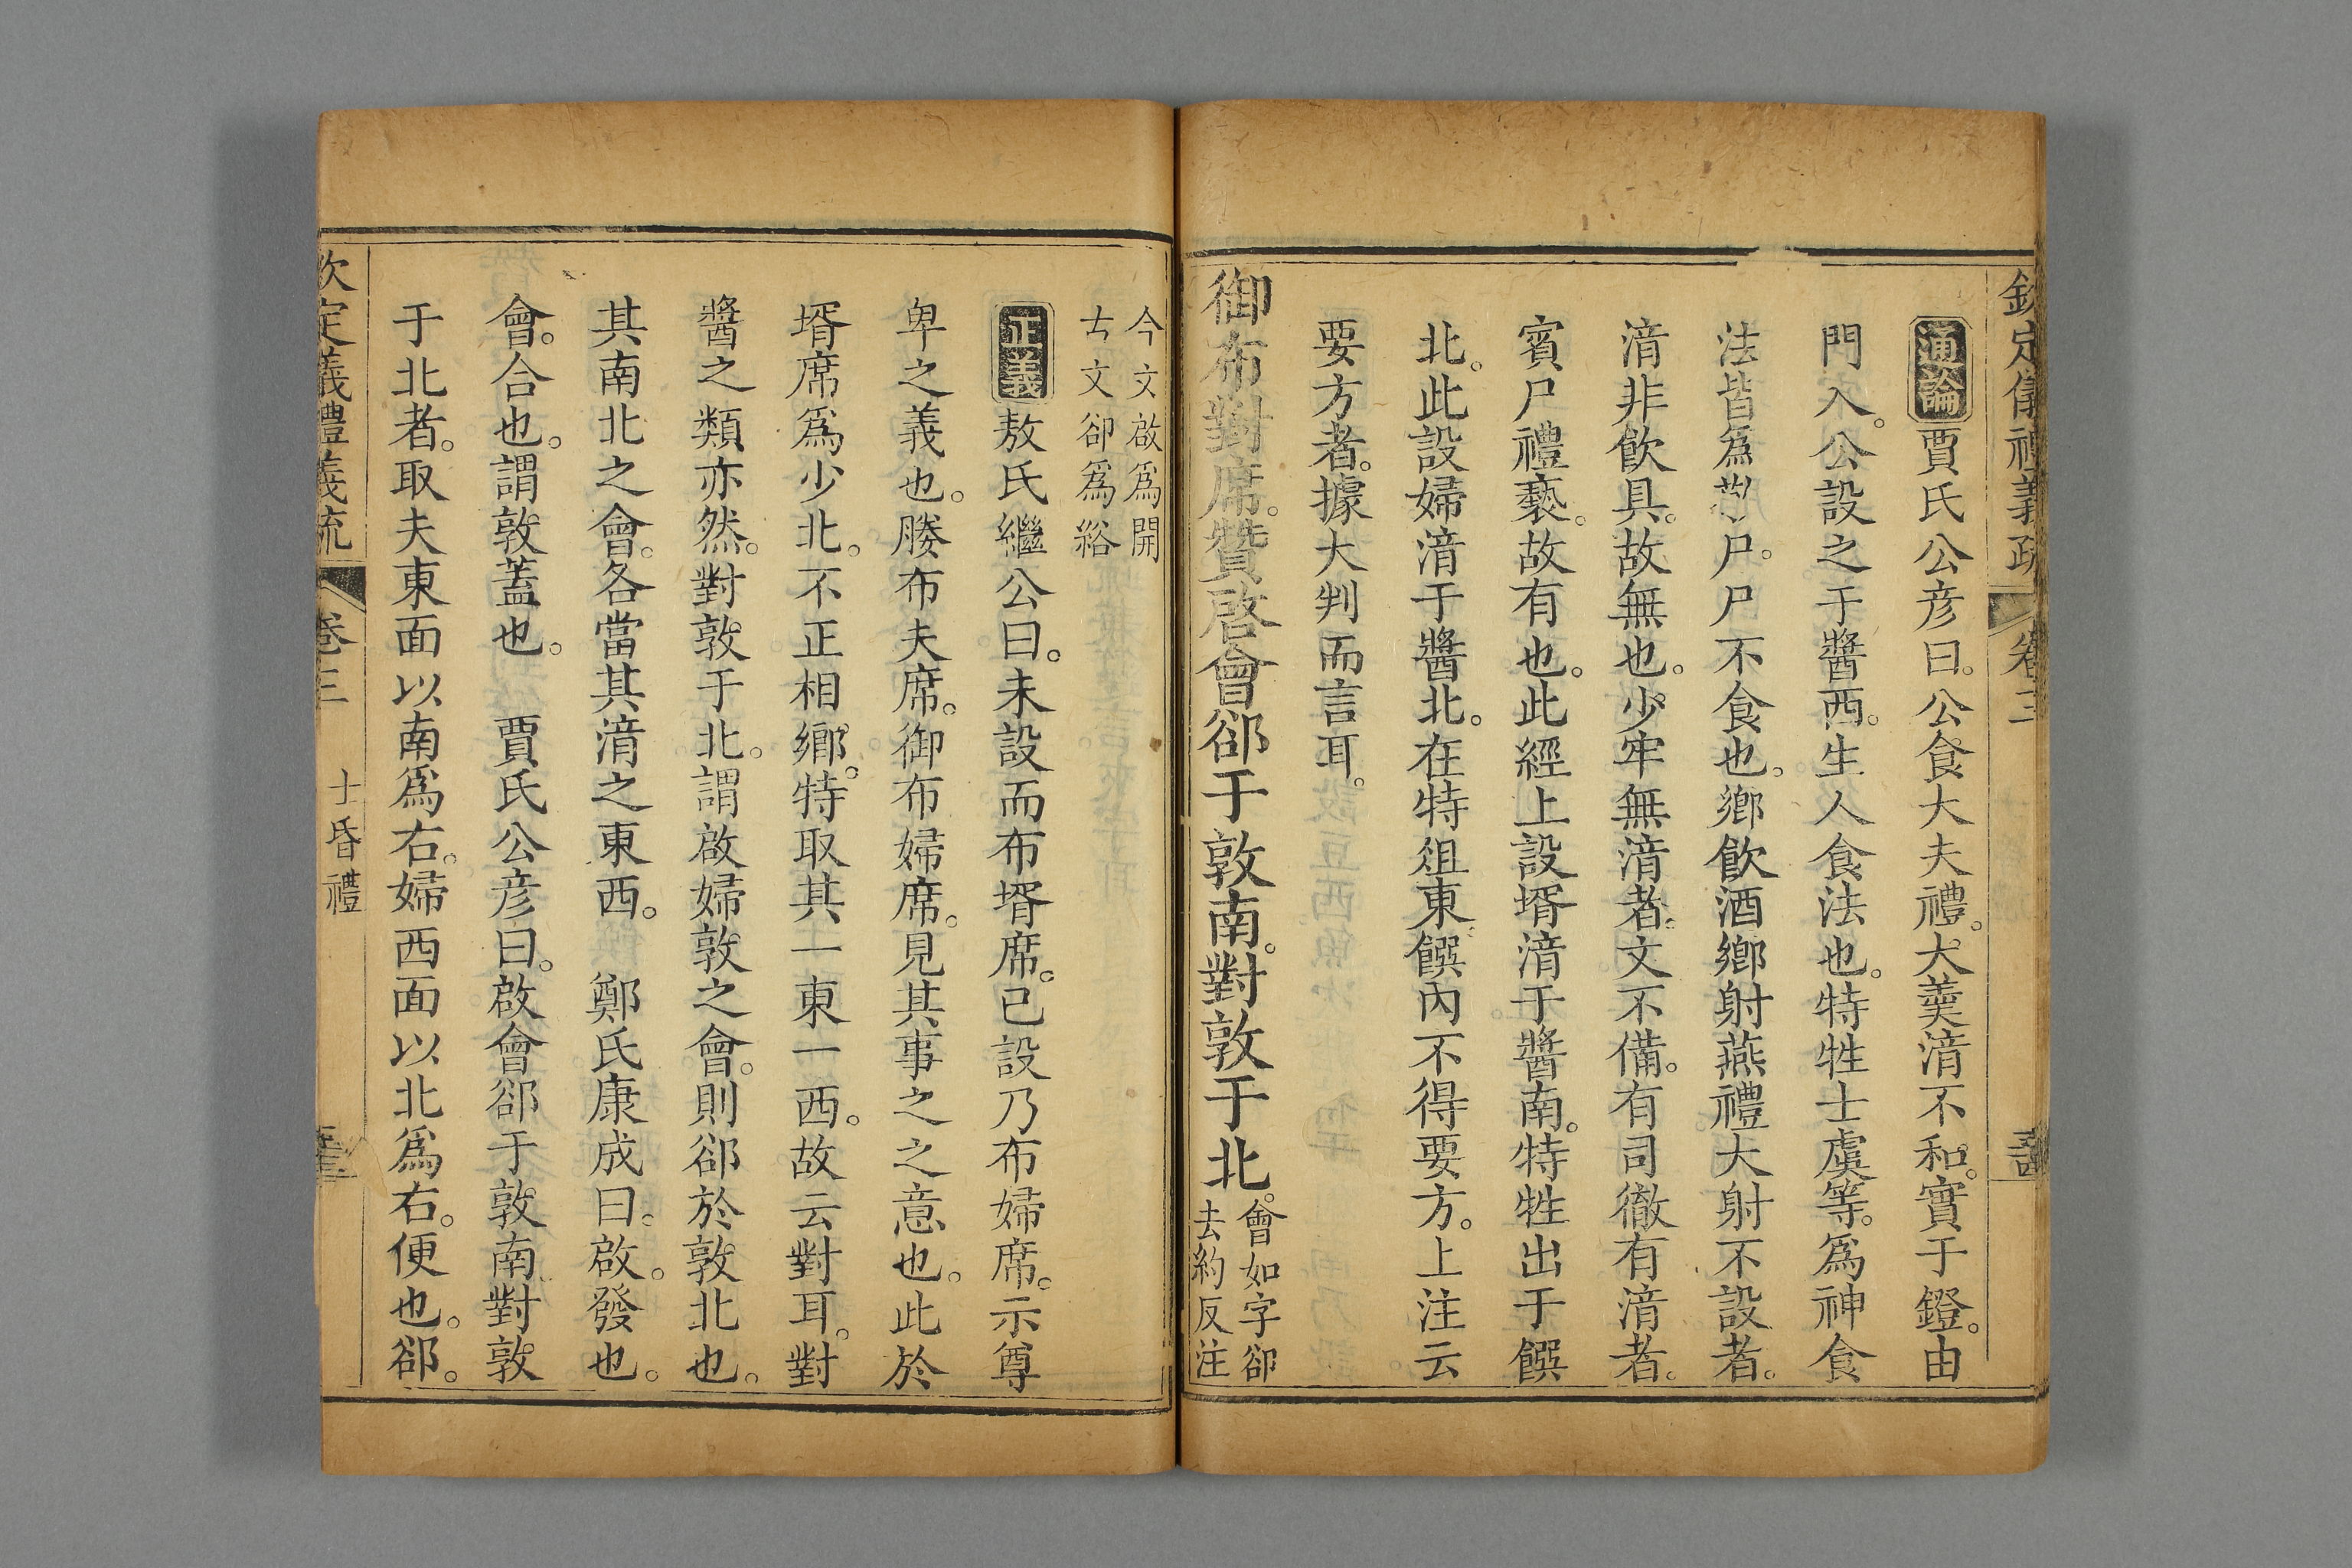 欽定儀禮義疏 卷三
通論賈氏公彦曰。公食大夫禮。大羹湇不和。實于鐙。由
門入。公設之于醬西。生人食法也。特牲士虞等。爲神食
法皆爲尸。尸不食也。鄉飲酒鄉射燕禮大射不設者。
湇非飲具。故無也。少牢無湇者。文不備。有司徹有湇者。
賓尸禮褻。故有也。此經上設壻湇于醬南。特牲出于饌
北。此設婦湇于醬北。在特俎東。饌內不得要方。上注云
要方者。據大判而言耳。
御布對席。贊啓會郤于敦南。對敦于北。會如字郤
去約反注
今文啟爲開
古文郤爲綌
正義敖氏繼公曰。未設而布壻席。已設乃布婦席。示尊
卑之義也。媵布夫席。御布婦席。見其事之之意也。此於
壻席爲少北。不正相鄉。特取其一東一西。故云對耳。對
醬之類亦然。對敦于北。謂啟婦敦之會。則郤於敦北也。
其南北之會。各當其湇之東西。 鄭氏康成曰。啟。發也。
會。合也。謂敦蓋也。 賈氏公彦曰。啟會郤于敦南對敦
于北者。取夫東面以南爲右。婦西面以北爲右。便也。郤。
欽定義禮義疏 卷三 士昏禮